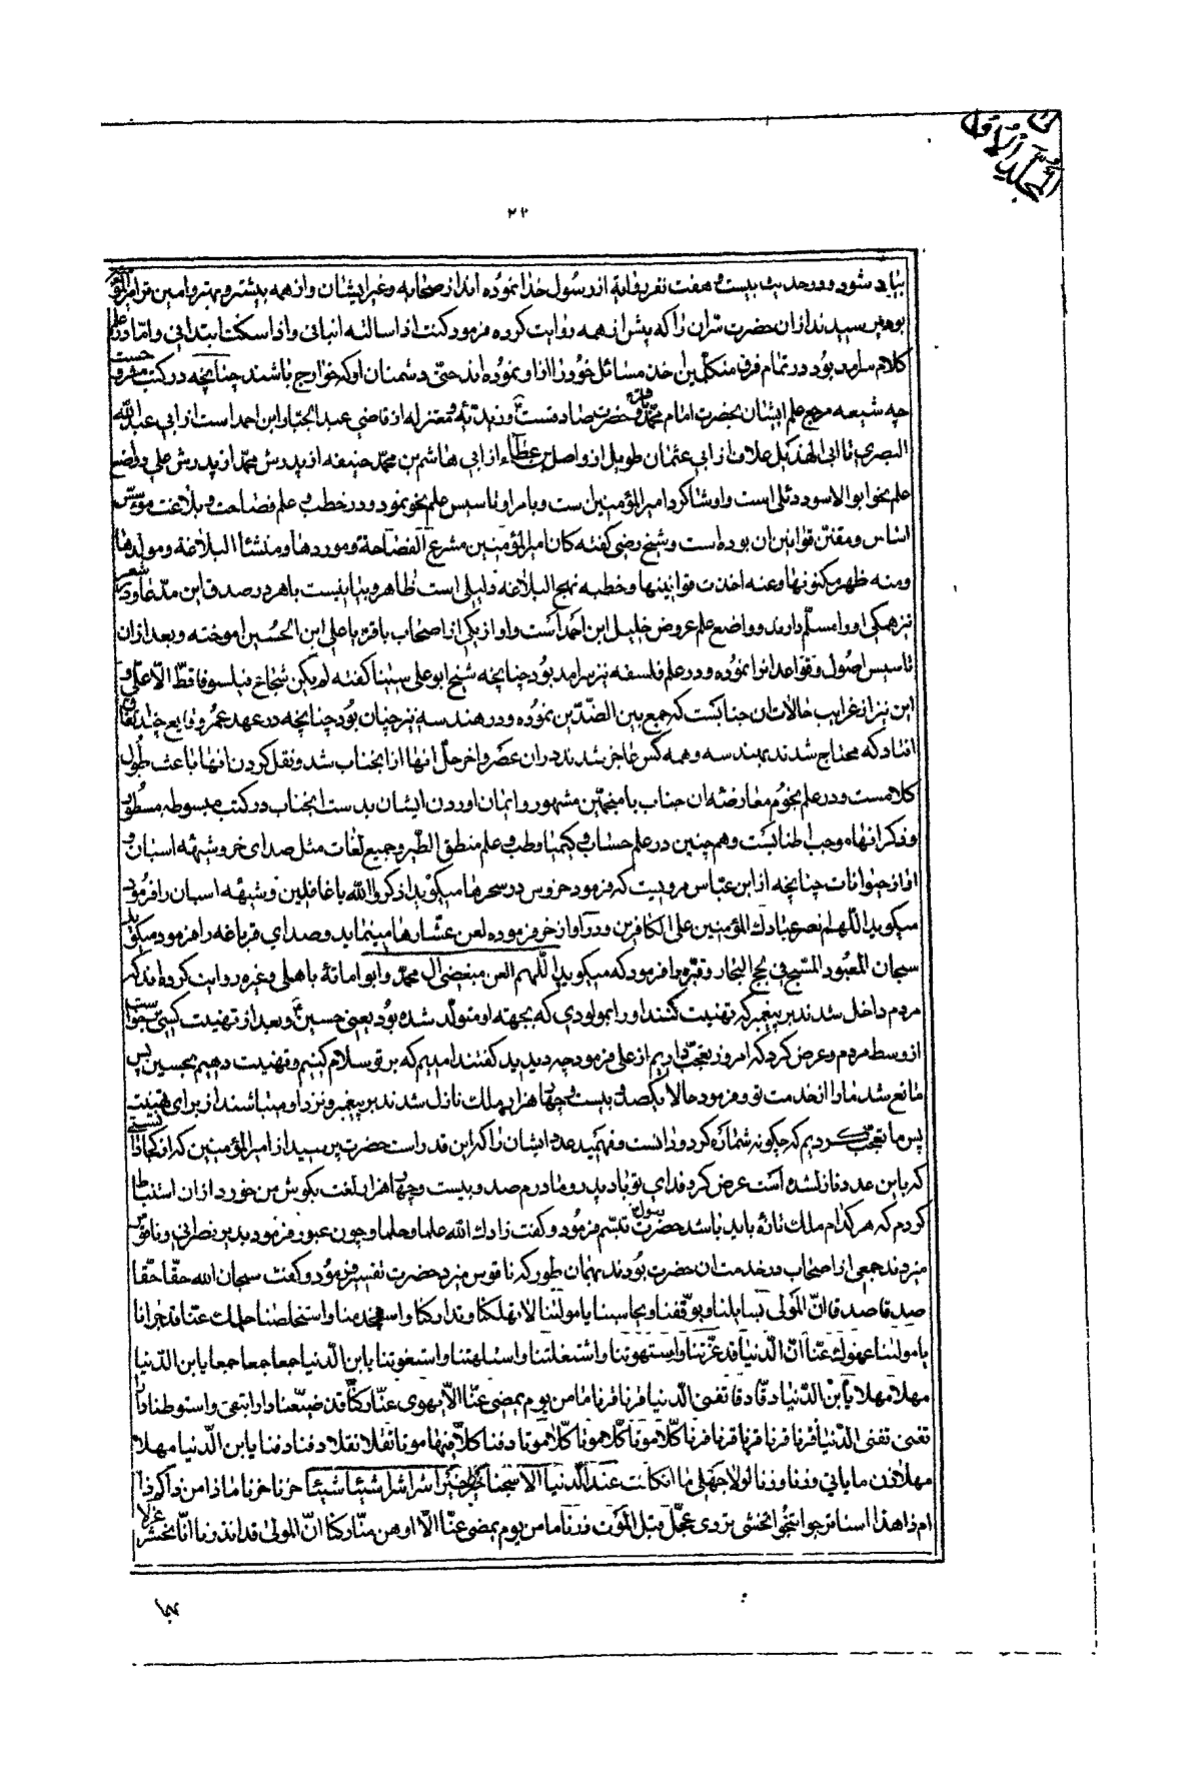 المجلد الاول
۲۲
بیاید شود و در حدیث بیست و هفت نفر روایة از رسول خدا نموده اند از صحابه و غیر ایشان و از همه بیشتر و بهتر و امین تر امیر المؤ
بوده پرسیدند از ان حضرت سر ان را که پیش از همه روایت کرده فرمود کنت اذا سالته انبانی و اذا سکت ابتدانی و اما در علم
کلام سرامد بود و در تمام فرق متکلمین اخذ مسائل خود را از او نموده اند حتی دشمنان او که خوارج باشند چنانچه در کتب مشروحست
چه شیعه مرجع علم ایشان بحضرت امام محمد باقر و حضرت صادقست و زیدیه و معتزله از قاضی عبد الجبار ابن احمد است از ابی عبد الله
البصری تا ابی الهذیل علاف از ابی عثمان طویل از واصل بن عطاء از ابی هاشم بن محمد حنیفه از پدرش محمد از پدرش علی و واضع
علم نحو ابو الاسود دئلی است و او شاکرد امیر المؤمنین ست و بامر او تاسیس علم نحو نمود و در خطب و علم فصاحت و بلاغت مؤسس
اساس و مقنن قوانین ان بوده است و شیخ رضی گفته کان امیر المؤمنین مشرع الفصاحة و موردها و منشأ البلاغة و مولدها
و منه ظهر مکنونها و عنه اخذت قوانینها و خطبه نهج البلاغه دلیلی است ظاهر و بینا بیست باهر در صدق این مدعا و در شعر
نیز همکی او را مسلم دارند و واضع علم عروض خلیل ابن احمد است و او از یکی از اصحاب باقر یا علی ابن الحسین اموخته و بعد از ان
تاسیس اصول و قواعد انرا نموده و در علم فلسفه نیز سرامد بود چنانچه شیخ ابو علی سینا گفته لم یکن شجاع فیلسوفا قط الا علی و
این نیز از غرایب حالات ان جنابست که جمع بین الضدین نموده و در هندسه نیز چنان بود چنانچه در عهد عمر وقایع چند اتفاق
افتاد که محتاج شدند بهندسه و همه کس عاجز شدند در ان عصر و اخر حل انها از انجناب شد و نقل کردن انها باعث طول
کلامست و در علم نجوم معارضه ان جناب با منجمین مشهور و ایمان اوردن ایشان بدست انجناب در کتب مبسوطه مسطور
و ذکر انها موجب اطنابست و هم چنین در علم حساب و کیمیا و طب و علم منطق الطیر و جمیع لغات مثل صدای خر و شیهه اسبان و
اواز حیوانات چنانچه از ابن عباس مرویست که فرمود خروس در سحرها میکوید اذکروا الله یا غافلین و شیهه اسبان را فرمود
میکوید اللهم انصر عبادک المؤمنین علی الکافرین و در اواز خر فرموده لعن عشارها مینماید و صدای قرباغه را فرمود میکوید
سبحان المعبود المسبح فی لجج البحار و قبره را فرمود که میکوید اللهم العن مبغضی ال محمد و ابو امامة باهلی و غیره روایت کرده اند که
مردم داخل شدند بر پیغمبر که تهنیت کنند او را بمولودی که بجهته او متولد شده بود یعنی حسین و بعد از تهنیت کسی برخواست
از وسط مردم و عرض کرد که امروز تعجب داریم از علی فرمود چه دیدید کفتند امدیم که بر تو سلام کنیم و تهنیت دهیم بحسین پس
مانع شد ما را از خدمت تو و فرمود حالا یکصد و بیست و چهار هزار ملک نازل شدند بر پیغمبر و نزد او میباشند از برای تهنیت
پس ما تعجب کردیم که چکونه شماره کرد و دانست و فهمید عدد ایشان را که این قدر است حضرت پرسید از امیر المؤمنین که از کجا دانستی
که باین عدد نازلشده است عرض کرد فدای تو باد پدر و مادرم صد و بیست و چهار هزار لغت بکوش من خورد از ان استنباط
کردم که هر کدام ملک تازه باید باشد حضرت رسول تبسم فرمود و کفت زادک الله علما و حلما و چون عبور فرمود بدیر نصرانی و ناقوس
میزدند جمعی از اصحاب در خدمت ان حضرت بودند بهمان طور که ناقوس میزد حضرت تفسیر فرمود و کفت سبحان الله حقا حقا
صدقا صدقا ان المولی یسایلنا و یوقفنا و یحاسبنا یا مولینا لا تهلکنا و تدارکنا و استخدمنا و استخلصنا حلمک عنا قد جرانا
یا مولینا عفوک عنا ان الدنیا قد غرتنا و استهوتنا و اشتغلتنا و استلهتنا و استغوتنا یابن الدنیا جمعا جمعا یابن الدنیا
مهلا مهلا یابن الدنیا دقا دقا تفنی الدنیا قرنا قرنا ما من یوم یمضی عنا الا یهوی عنا رکنا قد ضیعنا دارا تبقی و استوطنا دارا
تفنی تفنی الدنیا قرنا قرنا قرنا قرنا قرنا کلا موتا کلا موتا کلا موتا دفنا کلا فیها موتا نقلا نقلا دفنا دفنا یابن الدنیا مهلا
مهلا زن ما یاتی وزنا وزنا لولا جهلی ما ان کانت عند الدنیا الا سجنا خیرا خیرا شرا شرا شیئا شیئا حزنا حزنا ماذا من ذا کم ذا
ام ذا هذا اسنا ترجوا تنجوا تخشی تردی عجل قبل الموت وزنا ما من یوم یمضی عنا الا اوهن منا رکنا ان المولی قد انذرنا انا نحشر غرلا
بهما